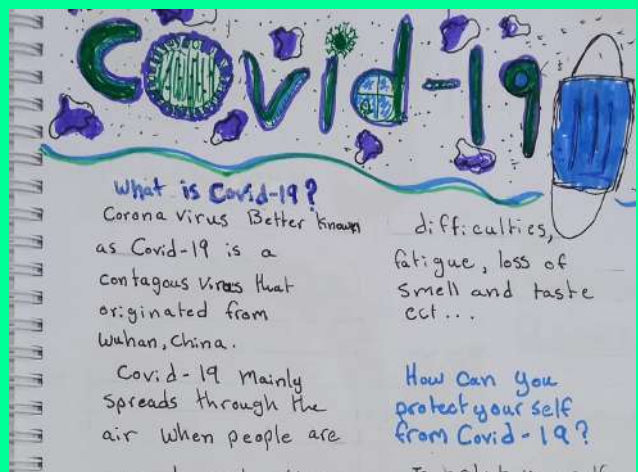 Covid-19
What is Covid-19?
Corona virus Better known
as Covid-19 is a
contagous virus that
originated from
Wuhan, China.
Covid-19 Mainly
spreads through the
air when people are
difficulties,
fatigue, loss of
smell and taste
ect...
How can you
protect your self
from Covid-19?